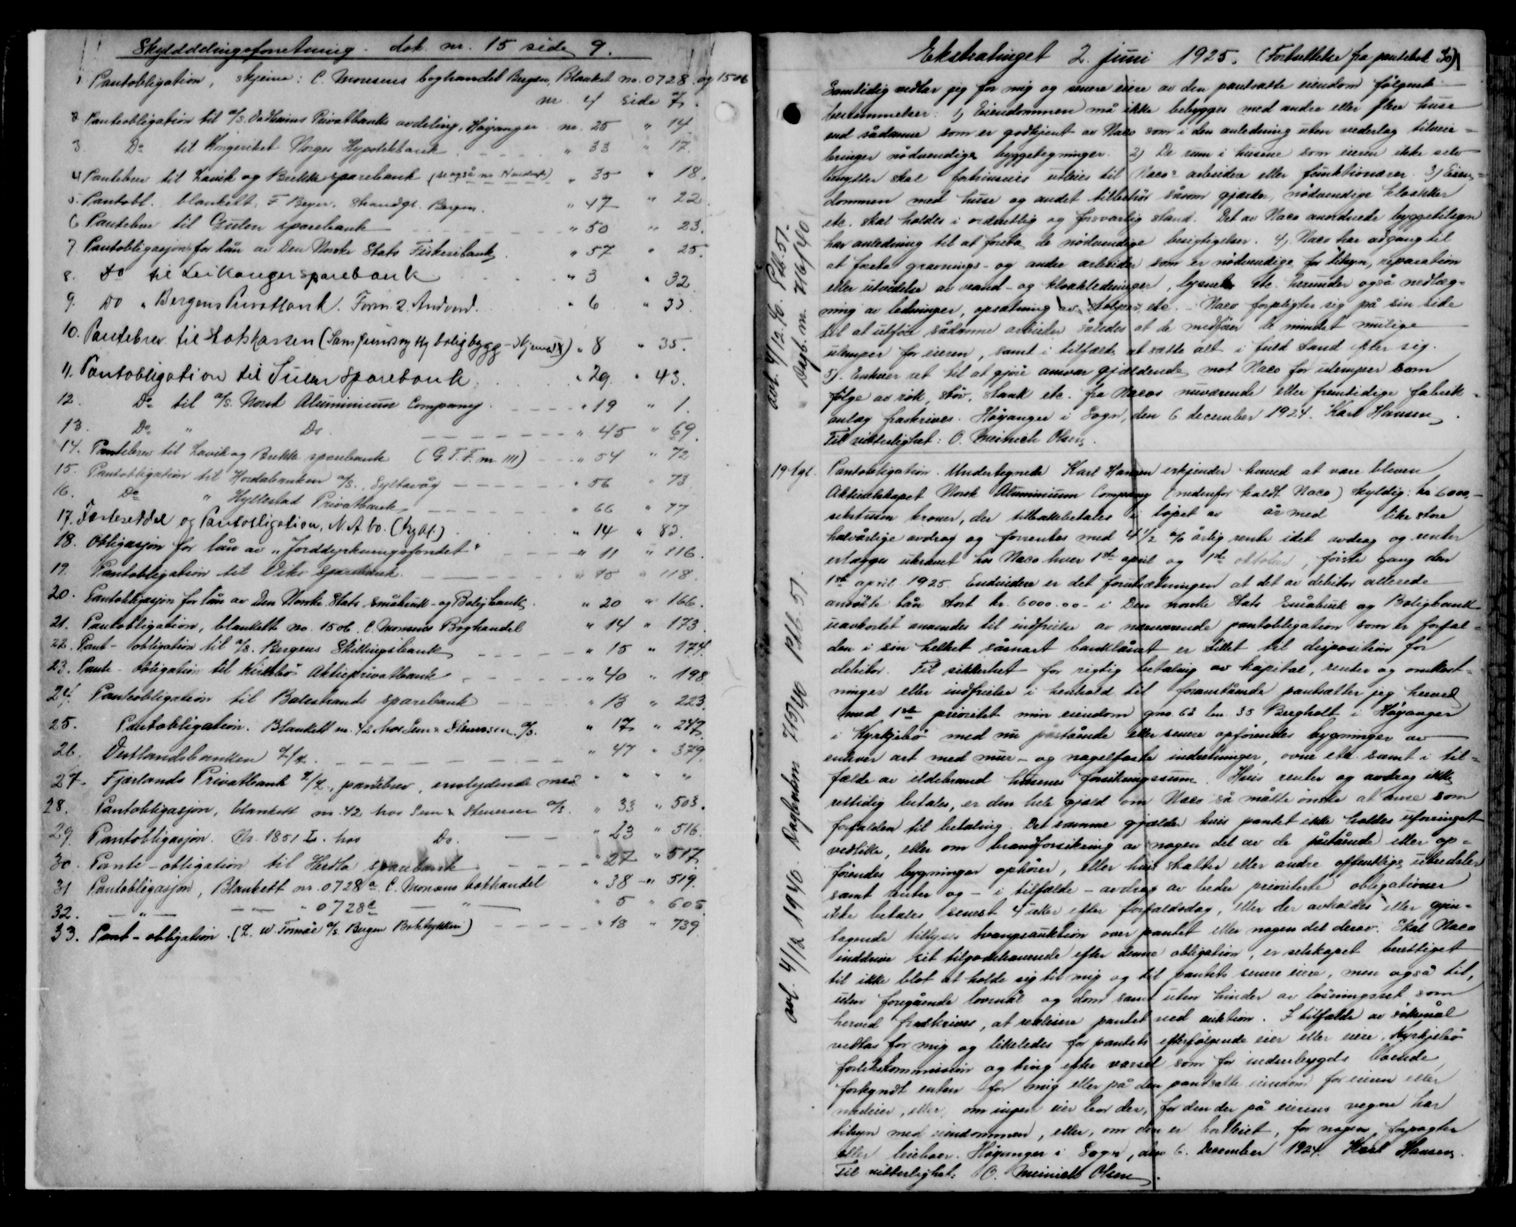 Skylddelingsforretning. dok. nr. 15 side 9.
1 Pantobligation, skjema: C. Monsens boghandel Bergen, Blanket no. 0728 og 1506
nr 4 side 7.
2 Panteobligation til a/s. De Havins Privatbanks avdeling, Høyanger nr. 25 " 14
3. Do til Kongeriket Norges Hypotekbank " 33 " 17.
4. Pantebrev til Lavik og Brekke sparebank " 35 " 18.
5. Pantobl. blankett. F. Beyer. Strandgt. Bergen. " 47 " 22.
6 Pantebrev til Gulen sparebank " 50 " 23.
7 Pantobligasjon for lån av Den Norske Stats Fiskeribank, " 57 " 25.
8. Do til Leikanger sparebank " 3 " 32
9. Do " Bergens Privatbank. Form 2. Andvord. " 6 " 33.
10. Pantebrev til Statskassen " 8 " 35.
11. Pantobligation til Sulen Sparebank " 29 " 43.
12. Do til a/s. Norsk Aluminium Company " 19 " 1.
13. Do " Do. " 45 " 69.
14. Pantebrev til Lavik og Brekke sparebank (G.T.F. nr. 111) " 54 " 72
15. Pantobligation til Hordabanken a/s. Syltevåg " 56 " 73.
16. Do " Hyllestad Privatbank " 66 " 77
17. Festeseddel og Pantobligation, N.A.Co. " 14 " 83.
18. Obligasjon for lån av "Jorddyrkningsfondet" " 11 " 116.
19. Pantobligation til Viks sparebank " 15 " 118.
20. Pantobligasjon for lån av Den Norske Stats Småbruk- og Boligbank, " 20 " 166.
21. Pantobligation, blankett no. 1506. C. Monsens Boghandel " 14 " 173.
22. Pant-obligation til a/s. Bergens Skillingsbank " 15 " 174.
23. Pante-obligation til Kirkebø Aktieprivatbank " 40 " 198
24. Pantobligation til Balestrands sparebank " 13 " 223.
25. Pantobligation. Blankett nr. 42 hos Sem & Stenersen a/s. " 17 " 247.
26. Vestlandsbanken a/s. " 47 " 379.
27. Fjærlands Privatbank a/s, pantebrev, enslydende med " " "
28. Pantobligasjon, blankett nr. 42 hos Sem & Stenersen a/s. " 33 " 503.
29 Pantobligasjon. Nr. 1851 I. hos Do. " 23 " 516.
30. Pante-obligation til Herdla sparebank " 27 " 517.
31 Pantobligasjon, Blankett nr. 0728a C. Monsens bokhandel " 38 " 519.
32. " 0728c " 5 " 605.
33. Pant-obligation " 13 " 739.
Ekstratinget 2. juni 1925. (Fortsættelse fra pantebok 30)
Samtidig vedtar jeg for mig og senere eiere av den pantsatte eiendom følgende
bestemmelser: 1) Eiendommen må ikke bebygges med andre eller flere huse
end sådanne som er godkjent av Naco som i den anledning uten vederlag tilveie-
bringer nødvendige byggetegninger. 2) De rum i husene som eieren ikke selv
benytter skal fortrinsvis utleies til Nacos arbeidere eller funktionærer. 3) Eien-
dommen med huse og andet tilbehør såsom gjærde, nødvendige kloakker
etc. skal holdes i ordentlig og forsvarlig stand. Det av Naco anordnede byggetilsyn
har anledning til at foreta de nødvendige besigtigelser. 4) Naco har adgang til
at foreta gravnings- og andre arbeider som er nødvendige for tilsyn, reparation
eller utvidelse av vand- og kloakledninger, lysnett etc. herunder også nedlæg-
ning av ledninger, opsætning av stolper, etc. - Naco forpligter sig på sin side
til at utføre sådanne arbeider således at de medfører de mindst mulige
ulemper for eieren, samt i tilfælde at sætte alt i fuld stand efter sig.
5). Enhver ret til at gjøre ansvar gjældende mot Naco for ulemper som
følge av røk, støv, stank etc. fra Nacos nuværende eller fremtidige fabrik-
anlæg fraskrives. Høyanger i Sogn, den 6 december 1924. Karl Hansen.
Til vitterlighet: O. Meinich Olsen.
19. tgl. Pantobligation. Undertegnede Karl Hansen erkjender herved at være bleven
Aktieselskapet Norsk Aluminium Company (nedenfor kaldt Naco) skyldig: kr. 6000,-
sekstusen kroner, der tilbakebetales i løpet av år med like store
halvårlige avdrag og forrentes med 4 1/2 % årlig rente idet avdrag og renter
erlægges ukrævet hos Naco hver 1ste april og 1ste oktober, første gang den
1ste april 1925. Endvidere er det forutsætningen at det av debitor allerede
ansøkte lån stort kr. 6000.00 - i Den norske Stats Småbruk og Boligbank
uavkortet anvendes til indfrielse av nærværende pantobligation som er forfal-
den i sin helhet såsnart banklånet er stillet til disposition for
debitor. Til sikkerhet for rigtig betaling av kapital, renter og omkost-
ninger eller indfrielse i henhold til foranstående pantsætter jeg herved
med 1ste prioritet min eiendom gno 63 bn. 35 Berghalt i Høyanger
i Kyrkjebø med nu påstående eller senere opførendes bygninger av
enhver art med mur- og nagelfaste indretninger, ovne etc. samt i til-
fælde av ildebrand husenes forsikringssum. Hvis renter og avdrag ikke
rettidig betales, er den hele gjæld om Naco så måtte ønske at anse som
forfalden til betaling. Det samme gjælder hvis pantet ikke holdes uforringet
vedlike, eller om brandforsikring av nogen del av de påstående eller op-
førendes bygninger ophører, eller hvis skatter eller andre offentlige utredsler
samt renter og - i tilfælde - avdrag av bedre prioriterte obligationer
ikke betales senest 4 uker efter forfaldsdag, eller der avholdes eller gjen-
tagende tillyses tvangsauktion over pantet eller nogen del derav. Skal Naco
inddrive sit tilgodehavende efter denne obligation, er selskapet berettiget
til ikke blot at holde sig til mig og til pantets senere eiere, men også til,
uten foregående lovmål og dom samt uten hinder av løsningsret som
herved fraskrives, at realisere pantet ved auktion. I tilfælde av søksmål
vedtas for mig og likeledes for pantets efterfølgende eier eller eiere, Kyrkjebø
forlikskommission og ting efter varsel som for indenbygds boende,
forkyndt enten for mig eller på den pantsatte eiendom for eieren eller
medeier, eller, om ingen eier bor der, for den der på eierens vegne har
tilsyn med eiendommen, eller, om den er bortleiet, for nogen forpagter
eller leieboer. Høyanger i Sogn, den 6. december 1924. Karl Hansen.
Til vitterlighet: O. Meinich Olsen.
avl. 4/12.40. Pbl. 57.
Dagb. nr. 716/40
avl. 4/12 1940 Dagboknr. 715/40 Pbl. 57.